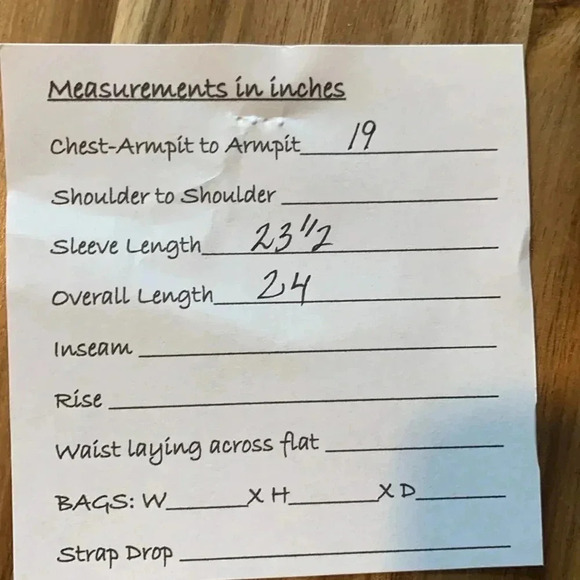 Measurements in inches
Chest-Armpit to Armpit 19
Shoulder to Shoulder
Sleeve Length 23 1/2
Overall Length 24
Inseam
Rise
Waist laying across flat
BAGS: W X H X D
Strap Drop